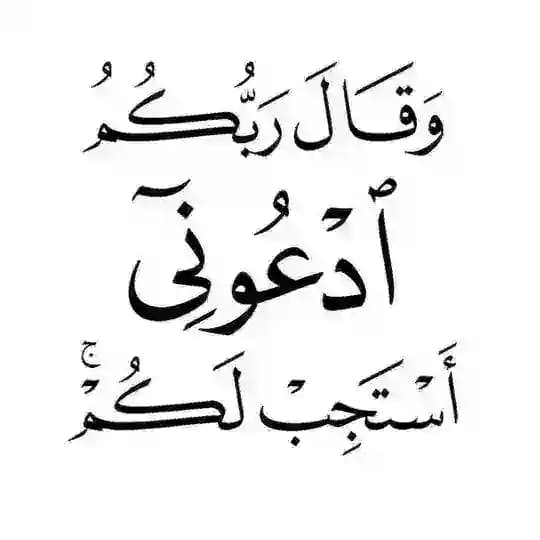 وَقَالَ رَبُّكُمُ
ٱدْعُونِىٓ
أَسْتَجِبْ لَكُمْۚ